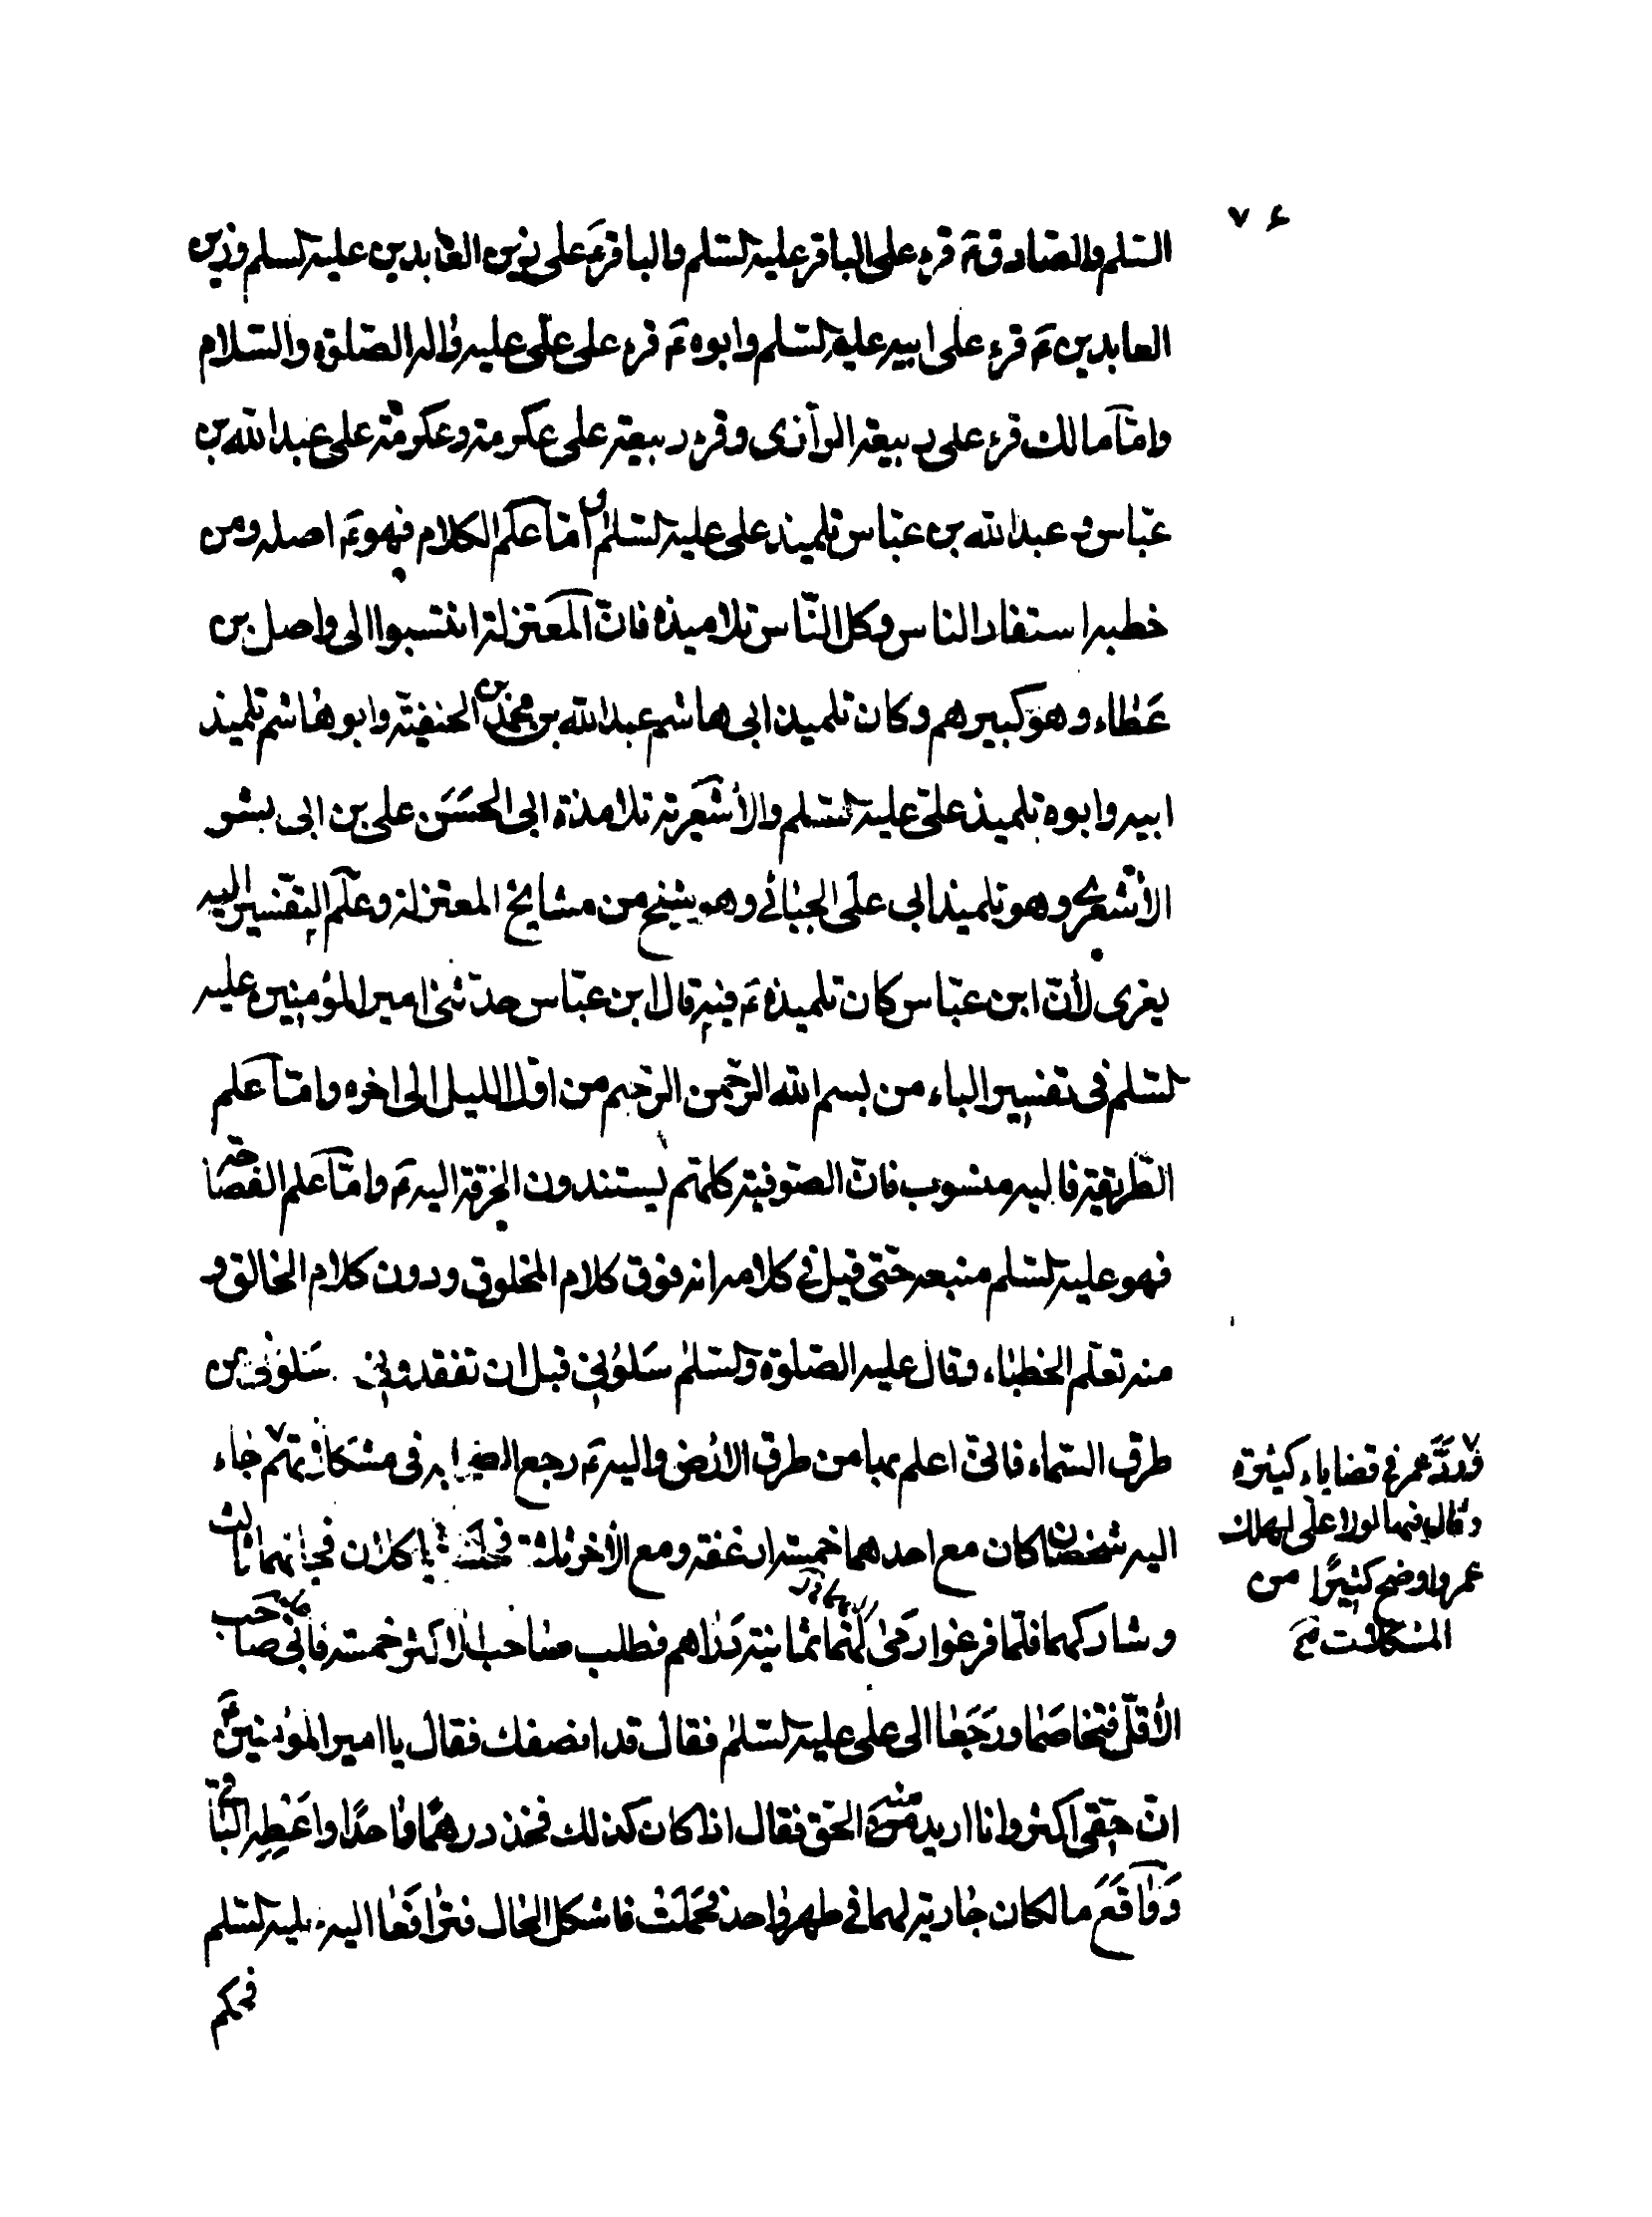 ٧٤
السّلم والصّادق ع قرء على الباقر عليه السّلم والباقر ع على زين العابدين عليه السلم وزين
العابدين ع قرء على ابيه عليه السّلم وابوه ع قرء على علىّ عليه واله الصّلوة والسّلام
وامّا مالك قرء على ربيعة الرّازى وقرء ربيعة على عكرمة وعكرمة على عبد الله بن
عبّاس وعبد الله بن عبّاس تلميذ على عليه السّلم وامّا علم الكلام فهو ع اصله ومن
خطبه استفاد الناس وكل النّاس تلاميذه فانّ المعتزلة انتسبوا الى واصل بن
عطاء وهو كبيرهم وكان تلميذ ابى هاشم عبد الله بن محمّد بن الحنفيّة وابو هاشم تلميذ
ابيه وابوه تلميذ علىّ عليه السّلم والأشعريّة تلامذة ابى الحسَن على بن ابى بشر
الأشعرى وهو تلميذ ابى على الجبائى وهو شيخ من مشايخ المعتزلة وعلم التّفسير اليه
يعزى لأنّ ابن عبّاس كان تلميذه ع فيه قال ابن عبّاس حدّثنى امير المؤمنين عليه
السّلم فى تفسير الباء من بسم الله الرّحمن الرّحيم من اوّل الليل الى اخره وامّا علم
الطّريقة فاليه منسوب فانّ الصّوفيّة كلّهم يستندون الخرقة اليه ع وامّا علم الفصاحة
فهو عليه السّلم منبعه حتّى قيل فى كلامه انه فوق كلام المخلوق ودون كلام الخالق و
منه تعلّم الخطباء وقال عليه الصّلوة والسّلم سَلوُنى قبل ان تفقدونى سَلونى عن
طرق السّماء فانّى اعلم بها من طرق الارض واليه ع رجع الصّحابه فى مشكلاتهم جاء
اليه شخصان كان مع احدهما خمسة ارغفة ومع الأخر ثلثة فجلسا ياكلان فجائهما ثالث
وشاركهما فلمّا فرغوا رمى لهما ثمانية دراهم فطلب صاحب الاكثر خمسة فابى صاحب
الأقلّ فتخاصما ورجَعا الى على عليه السّلم فقال قد انصفك فقال يا امير المؤمنين ع
انّ حقّى اكثر وانا اريد منه الحقّ فقال اذا كان كذلك فخذ درهمًا واحدًا واعَطِهِ الباقى
وَواقَعَ مالكان جارية لهما فى طهر واحد فحَملَتْ فاشكل الحال فترافَعا اليه عليه السّلم
فحكم
وردّه عمر فى قضاياء كثيرة
وقال فيها لولا على لهلك
عمر واوضح كثيرًا من
المشكلات صح